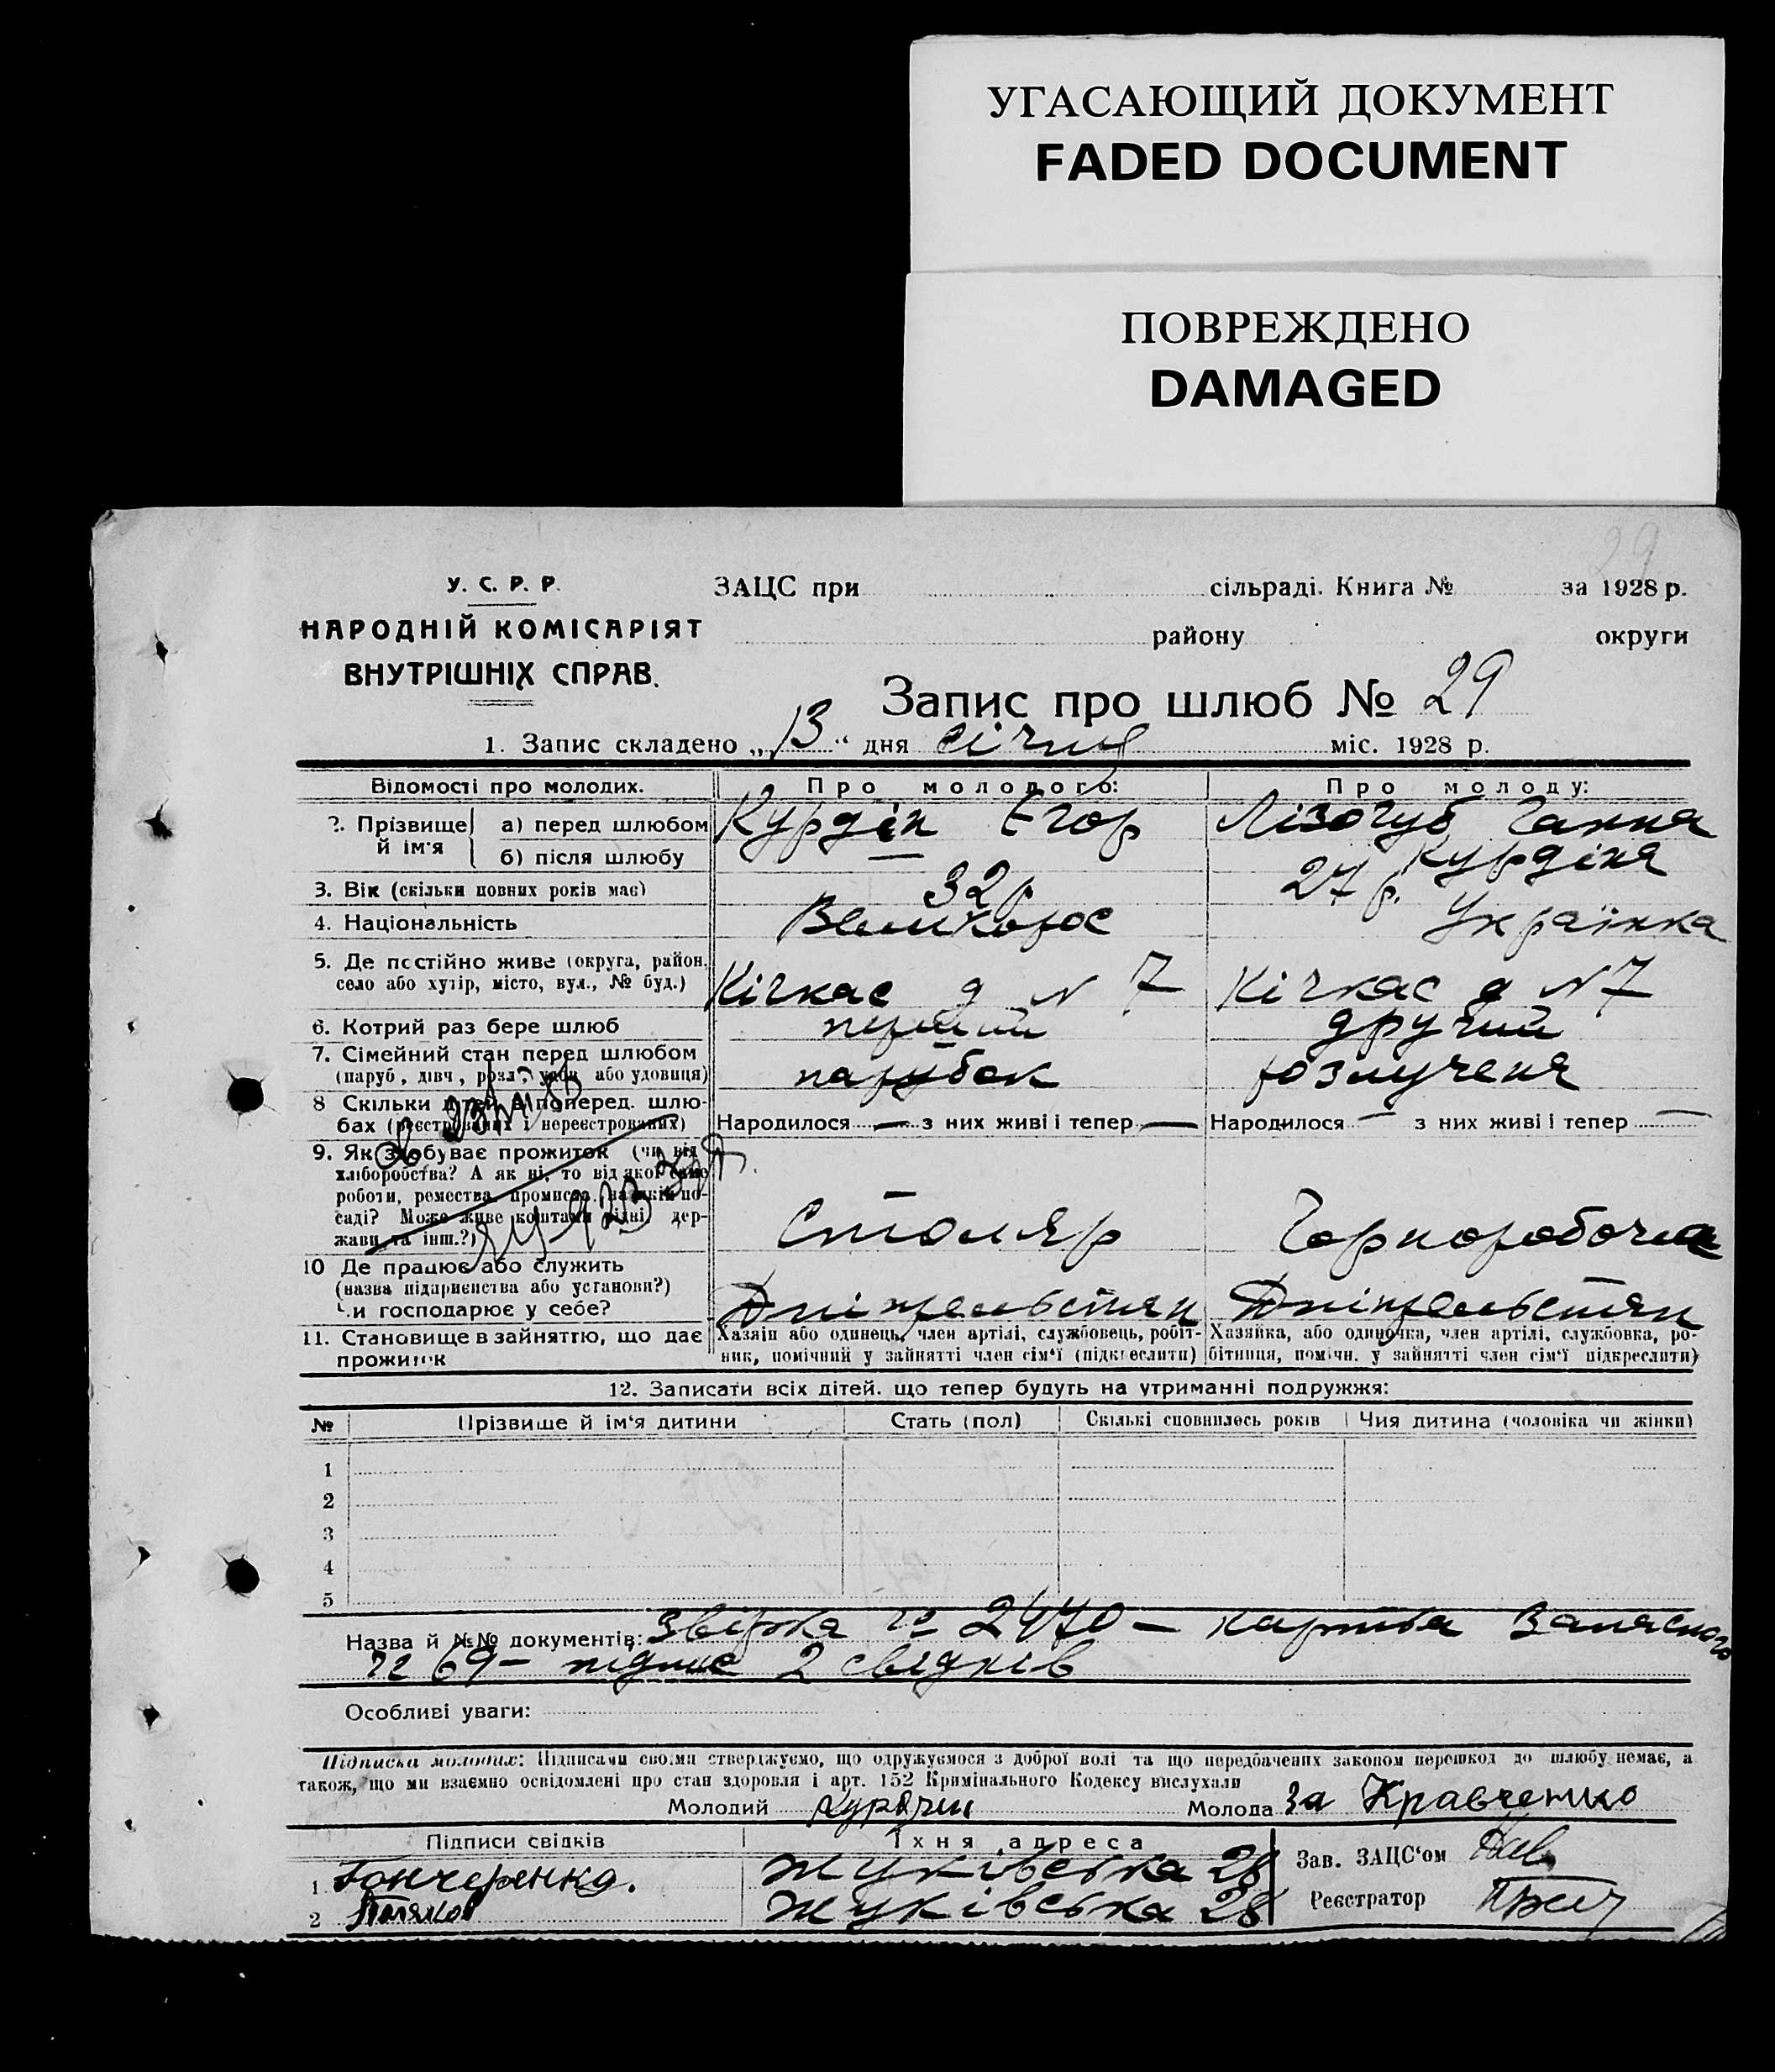 УГАСАЮЩИЙ ДОКУМЕНТ
FADED DOCUMENT
ПОВРЕЖДЕНО
DAMAGED
29
У. С. Р. Р.
НАРОДНІЙ КОМІСАРІЯТ
ВНУТРІШНІХ СПРАВ.
ЗАЦС при сільраді. Книга № за 1928 р.
району округи
Запис про шлюб № 29
1. Запис складено „13“ дня січня міс. 1928 р.
Відомості про молодих. Про молодого: Про молоду:
2. Прізвище й ім'я а) перед шлюбом Курдін Єгор Лізогуб Ганна
б) після шлюбу — Курдіна
3. Вік (скільки повних років має) 32 р 27 р.
4. Національність Великорос Українка
5. Де постійно живе (округа, район, село або хутір, місто, вул., № буд.) Кічкас д N 7 Кічкас д N 7
6. Котрий раз бере шлюб перший другий
7. Сімейний стан перед шлюбом (паруб, дівч, розл, удів або удовиця) парубок розлучена
8 Скільки дітей в поперед. шлюбах (реєстрованих і нереєстрованих) Народилося — з них живі і тепер — Народилося — з них живі і тепер —
9. Як здобуває прожиток (чи від хліборобства? А як ні, то від якої саме роботи, ремества, промисла, на якій посаді? Може живе коштами рідні, держави та інш.?) Столяр Чорноробоча
10 Де працює або служить (назва підприенства або установи?) Чи господарює у себе? Дніпрельстан Дніпрельстан
11. Становище в зайняттю, що дає прожиток
Хазяін або одинець, член артілі, службовець, робітник, помічний у зайнятті член сім'ї (підкреслити)
Хазяйка, або одиночка, член артілі, службовка, робітниця, помічн. у зайнятті член сім'ї підкреслити)
12. Записати всіх дітей. що тепер будуть на утриманні подружжя:
№ Прізвище й ім'я дитини Стать (пол) Скількі сповнилось років Чия дитина (чоловіка чи жінки)
1
2
3
4
5
Назва й №№ документів: Звірка № 2470 — картка Запасного
№ 69 — підпис 2 свідків
Особливі уваги:
Підписка молодих: Підписами своїми стверджуємо, що одружуємося з доброї волі та що передбачених законом перешкод до шлюбу немає, а
також, що ми взаємно освідомлені про стан здоровля і арт. 152 Кримінального Кодексу вислухали
Молодий Курдин Молода За Кравченко
Підписи свідків Їхня адреса
1 Гончаренко. Жуківська 28
2 Поляков Жуківська 28
Зав. ЗАЦС'ом
Реєстратор